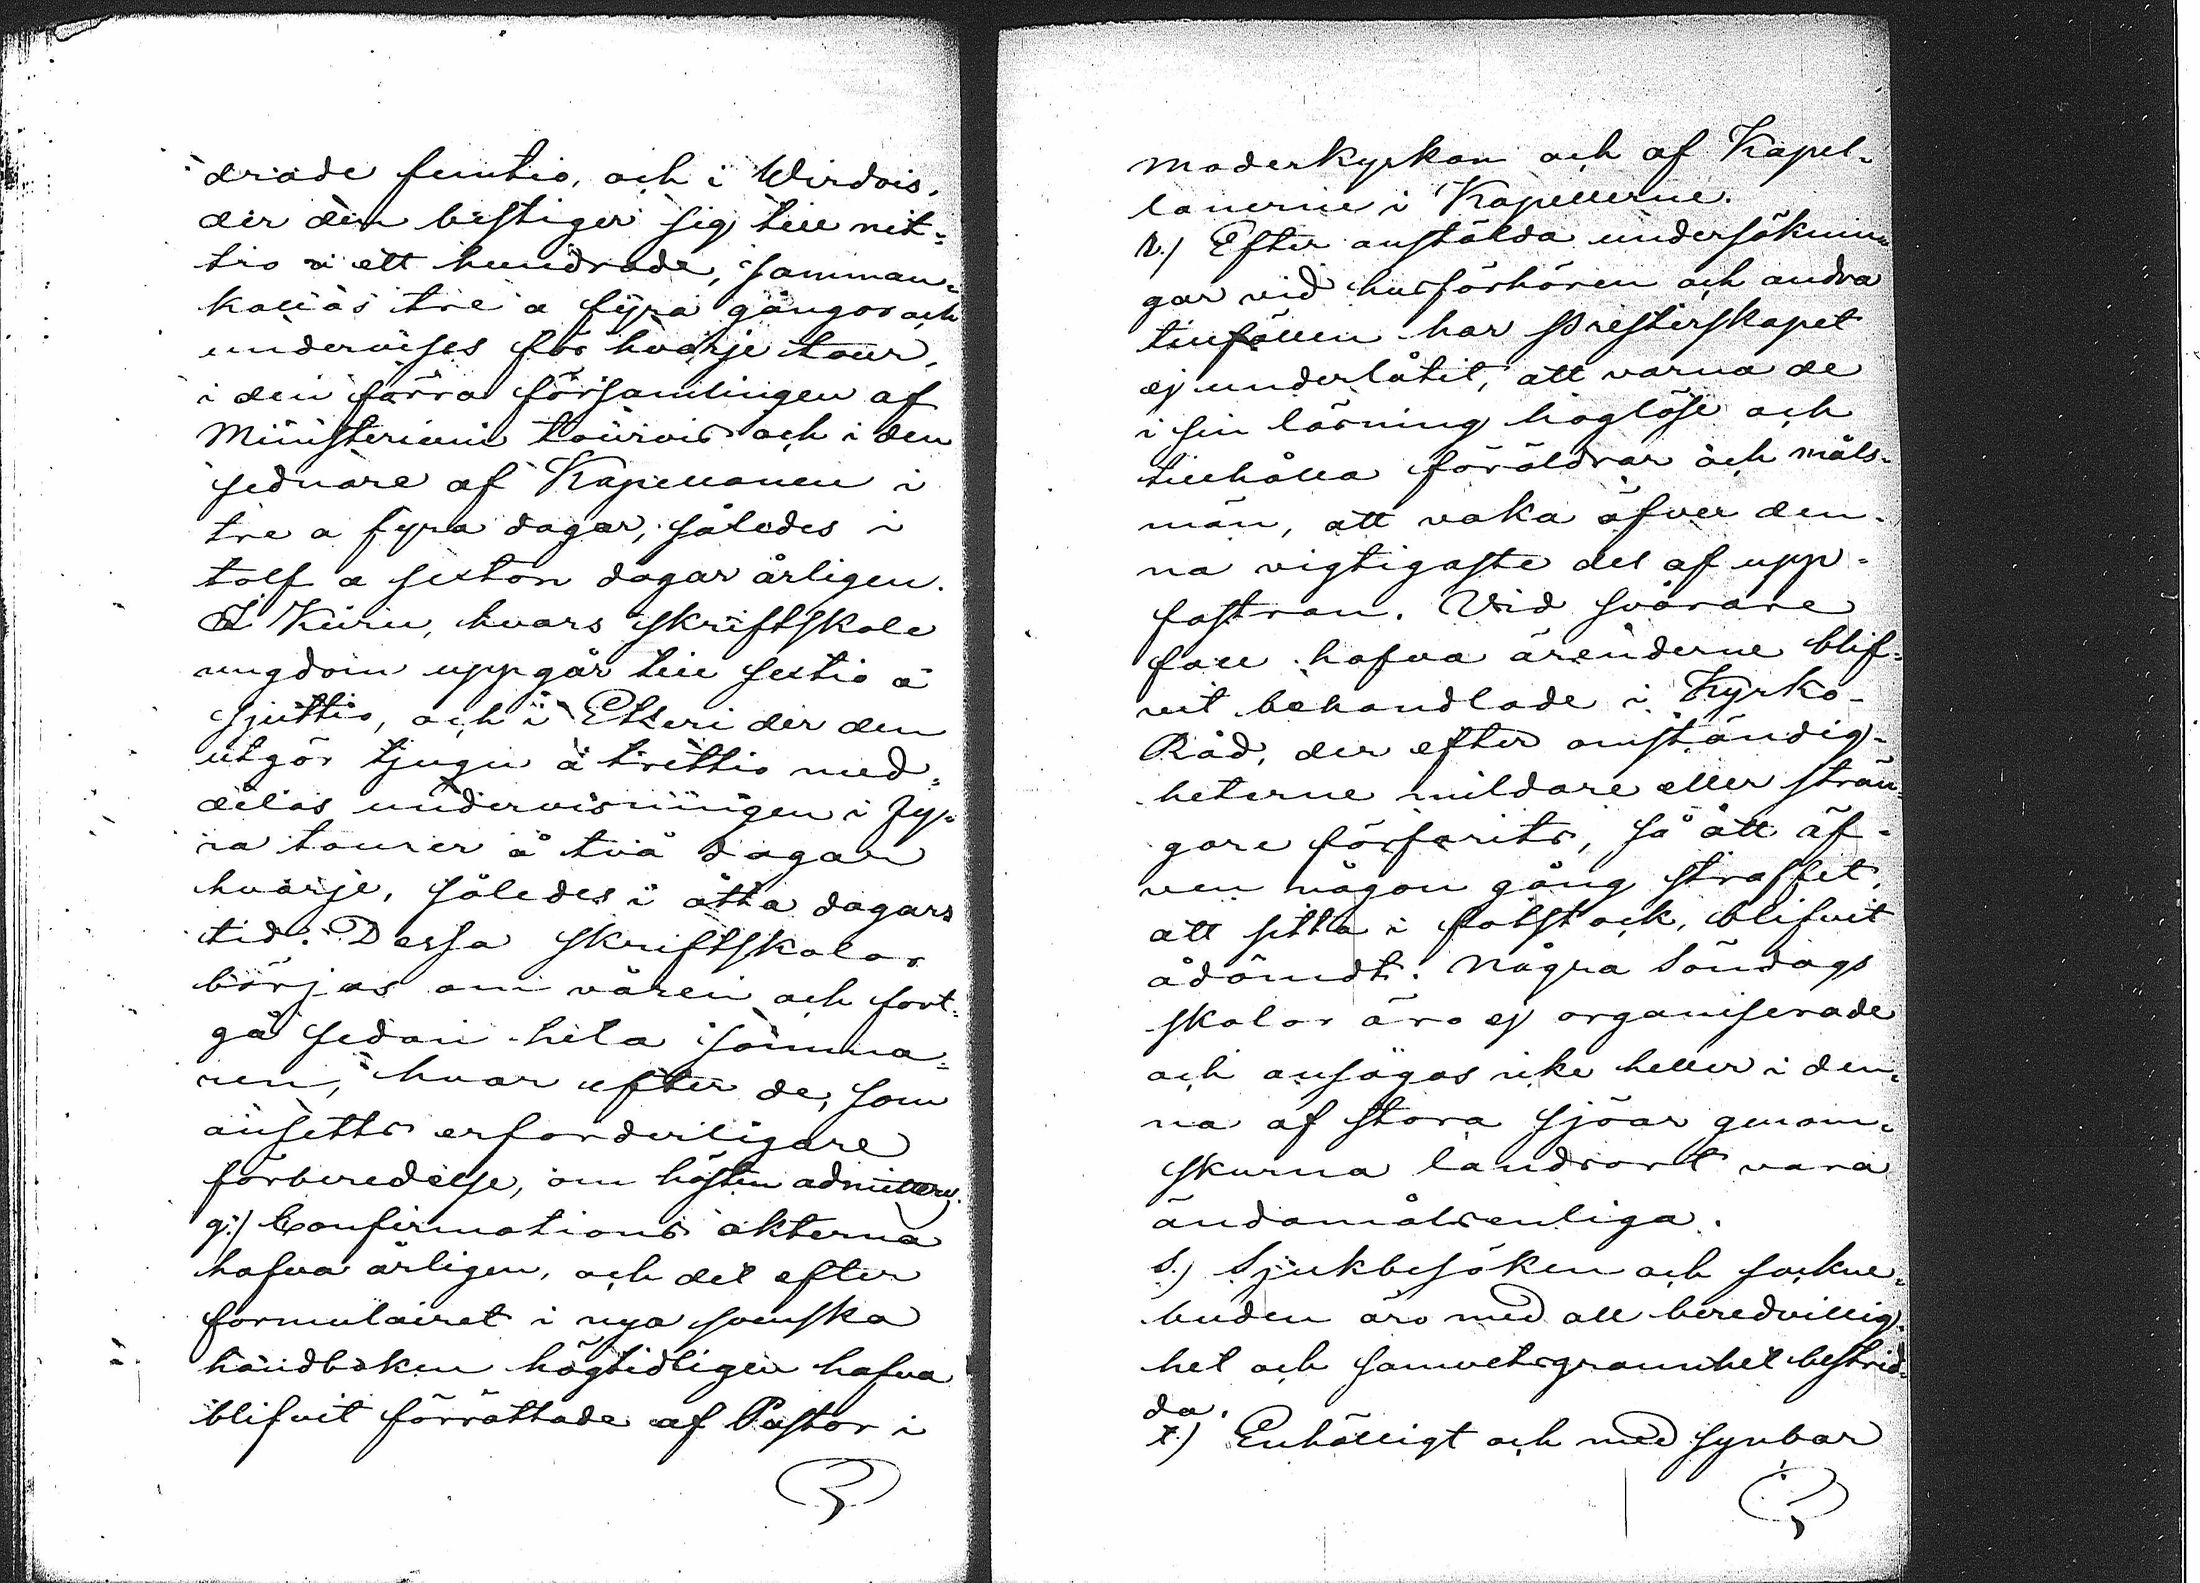 drade femtio, och i Wirdois,
der den bestiger sig till nit=
tio a ett hundrade, samman=
kallas tre a fyra gångor och
undervises för hvarje tour,
i den förra församlingen af
Ministerium tourvis och i den
sednare af Kapellanen i
tre a fyra dagar, således i
tolf a sexton dagar årligen.
I Kuru, hvars skriftskole
ungdom uppgår till sextio á
sjuttio, och i Etseri der den
utgör tjugu á trettio med=
delas undervisningen i fy=
ra tourer á två dagar
hvarje, således i åtta dagars
tid. Dessa skriftskolor
börjas om våren och fort=
gå sedan hela somma=
ren, hvar efter de, som
ansetts erforderligare
förberedelse, om hösten admitteras.
q.) Confirmations akterna
hafva årligen, och det efter
formulairet i nya svenska
handboken högtidligen hafva
blifvit förrättade af Pastor i
moderkyrkan och af Kapel-
lanerne i Kapellerne.
r.) Efter anstälda undersöknin=
gar vid husförhören och andra
tillfällen har Presterskapet
ej underlåtit, att varna de
i sin läsning hoglöse och
tillhålla föräldrar och måls-
män, att vaka öfver den-
na vigtigaste del af upp-
fostran. Vid svårare
fall hafva ärenderne blif-
vit behandlade i Kyrko-
Råd, der efter omständig-
heterne mildare eller strän=
gare förfarits, så att äf-
ven någon gång straffet,
att sitta i fotstock, blifvit
ådömdt. Några Söndags
skolor äro ej organiserade
och ansågos icke heller i den=
na af stora sjöar genom=
skurna landsort vara
ändamålsenliga.
s.) Sjukbesöken och sockne=
buden äro med all beredvillig-
het och samvetsgrannhet bestrid=
da.
t.) Enhälligt och med synbar